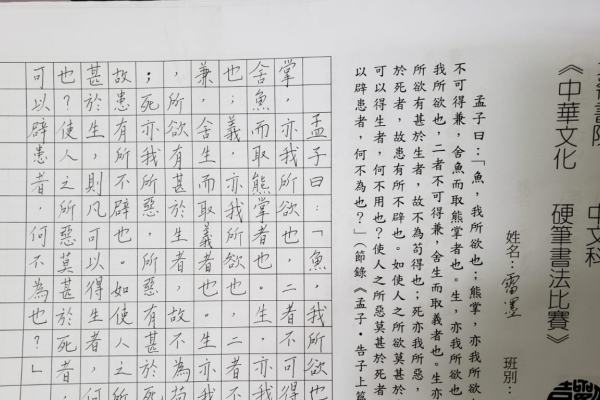 書院 中文科
《中華文化 硬筆書法比賽》
姓名：雷墨 班別：
孟子曰：「魚，我所欲也；熊掌，亦我所欲
不可得兼，舍魚而取熊掌者也。生，亦我所欲也
我所欲也，二者不可得兼，舍生而取義者也。生亦
所欲有甚於生者，故不為苟得也；死亦我所惡，
於死者，故患有所不辟也。如使人之所欲莫甚於
可以得生者，何不用也？使人之所惡莫甚於死者
以辟患者，何不為也？」（節錄《孟子·告子上篇
孟子曰：「魚，我所欲也
掌，亦我所欲也，二者不可得
舍魚，而取熊掌者也。生，亦我
也；義，亦我所欲也。二者不可
兼，舍生而取義者也。生亦我
，所欲有甚於生者，故不為苟
；死亦我所惡，所惡有甚於死
故患有所不辟也。如使人之所
甚於生，則凡可以得生者，何
也？使人之所惡莫甚於死者，
可以辟患者，何不為也？」